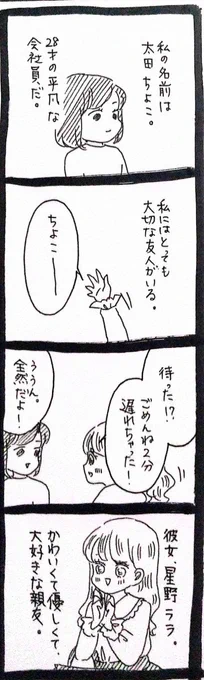 私の名前は
太田ちよこ。
28才の平凡な
会社員だ。
私にはとっても
大切な友人がいる。
ちよこー
待った!?
ごめんね2分
遅れちゃった!
ううん。
全然だよ!
彼女、星野ララ。
かわいくて優しくて、
大好きな親友。